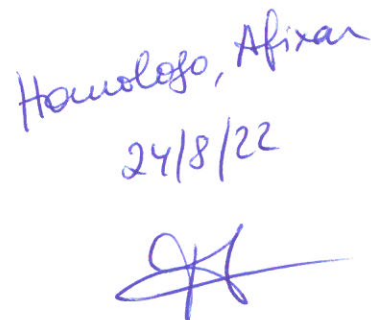 Homologo, Afixar
24/8/22